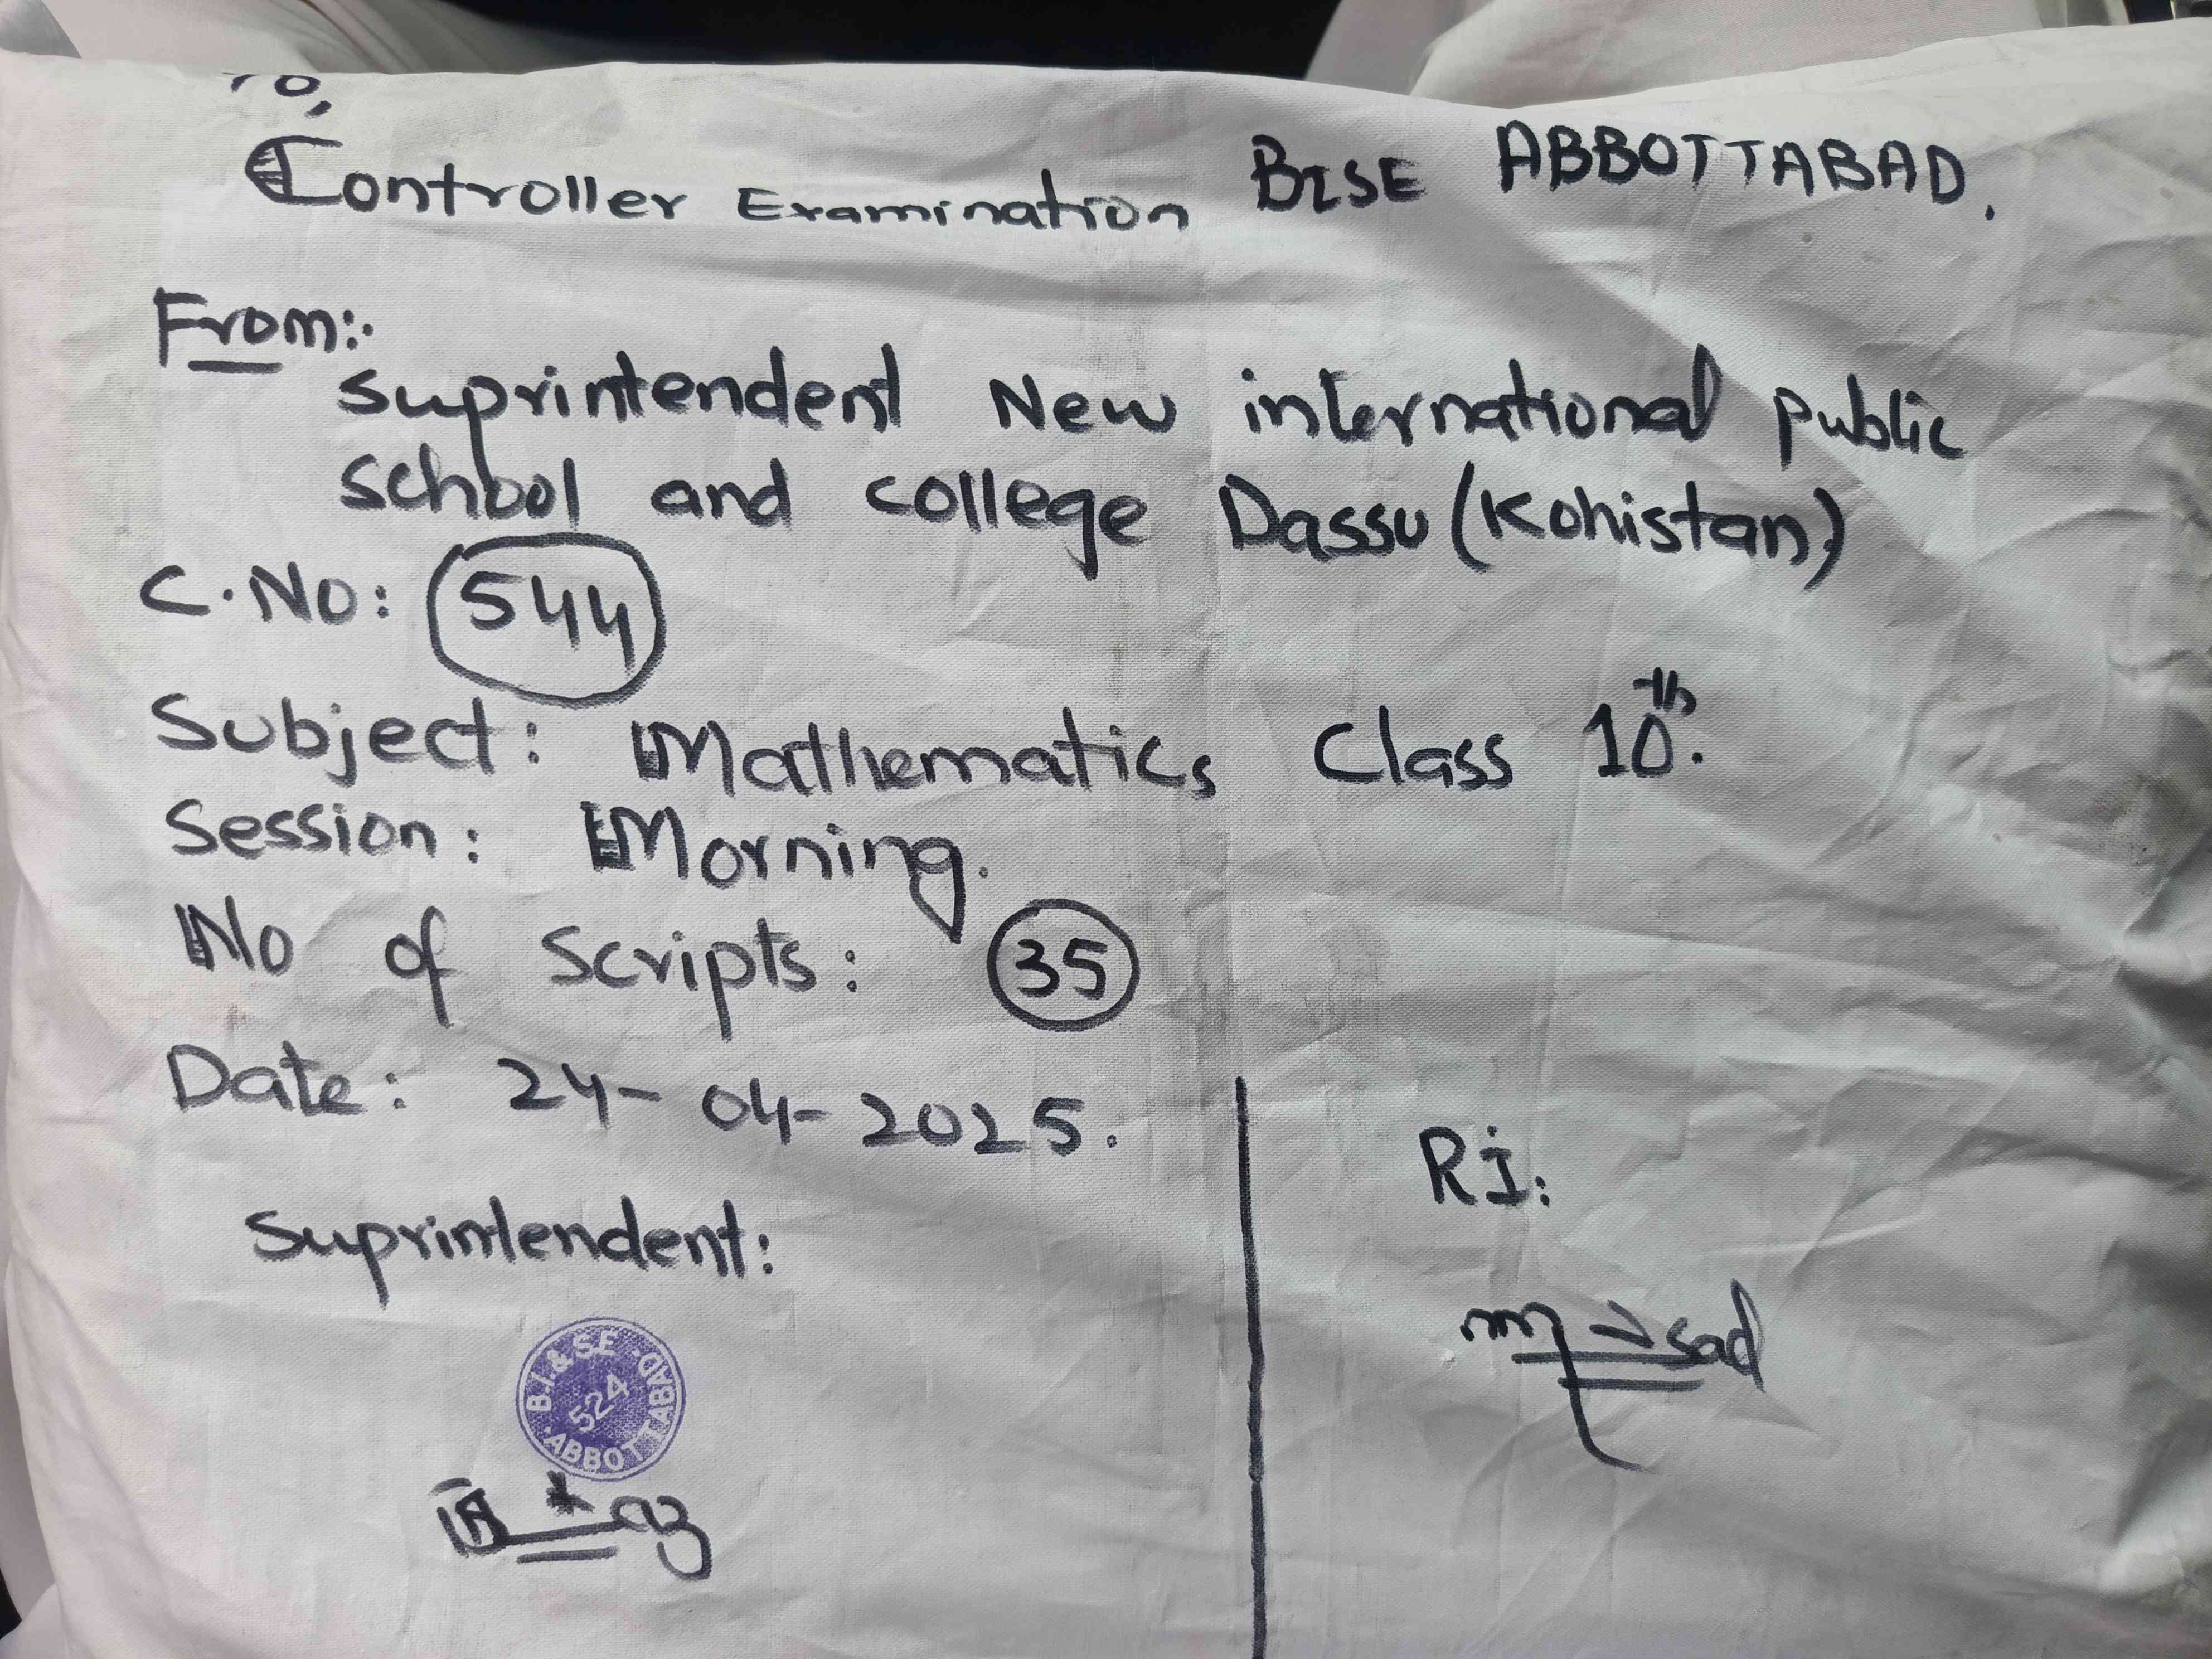 To,
Controller Examination BISE ABBOTTABAD.
From:.
Suprintendent New international public
School and college Dassu (Kohistan)
C.No: 544
Subject: Mathematics Class 10th.
Session: Morning.
No of Scripts: 35
Date: 24-04-2025.
Suprintendent:
B.I.&S.E. ABBOTTABAD. 524
RI: